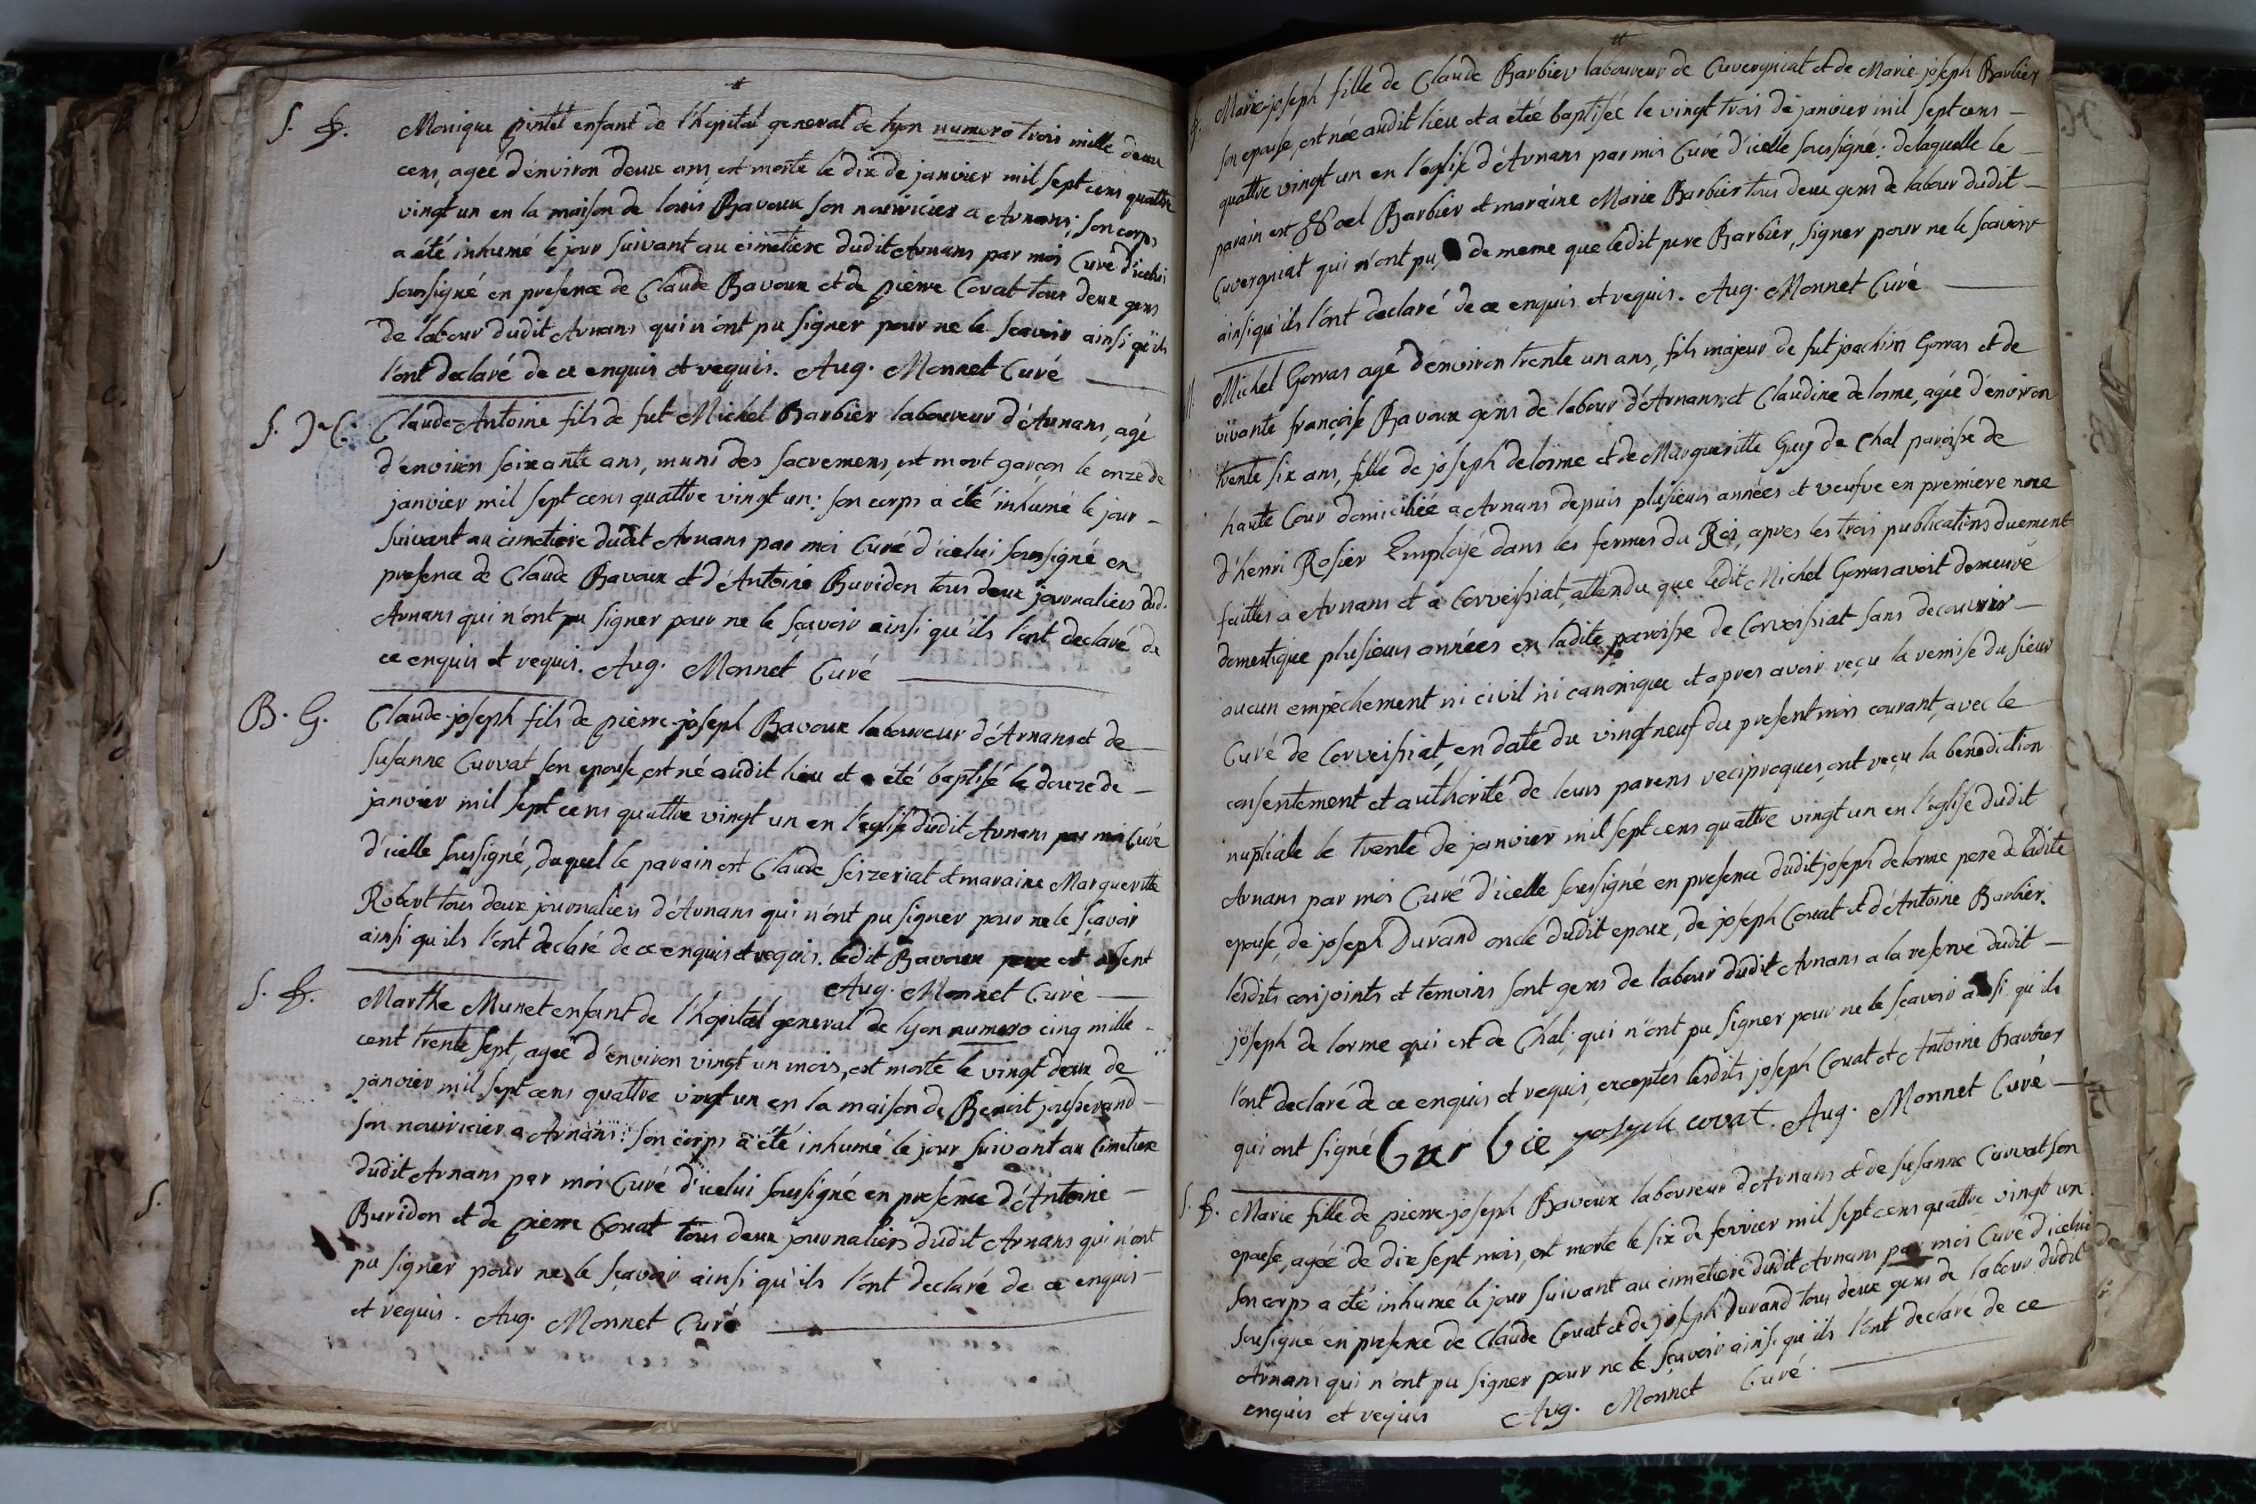 S. f. Monique pintet enfant de l'hopital general de lyon numero trois mille deux
cens, ageé d'environ deux ans, est morte le dix de janvier mil sept cens quattre
vingt un en la maison de louis Ravoux son nourricier a Arnans; son corps
a été inhumé le jour suivant au cimetiere dudit Arnans par moi Curé d'icelui
soussigné en presence de Claude Ravoux et de pierre Covat tous deux gens
de labour dudit Arnans qui n'ont pu signer pour ne le sçavoir ainsi qu'ils
l'ont declaré de ce enquis et requis. Aug. Monnet Curé
S. Claude-Antoine fils de fut Michel Barbier laboureur d'Arnans, agé
d'environ soixante ans, muni des sacremens, est mort garçon le onze de
janvier mil sept cens quattre vingt un: son corps a été inhumé le jour
suivant au cimetiere dudit Arnans par moi Curé d'icelui soussigné en
presence de Claude Ravoux et d'Antoine Buridon tous deux journaliers dud.
Arnans qui n'ont pu signer pour ne le sçavoir ainsi qu'ils l'ont declaré de
ce enquis et requis. Aug. Monnet Curé
B. G. Claude-joseph fils de pierre-joseph Ravoux laboureur d'Arnans et de
Susanne Curvat son epouse, est né audit lieu et a été baptisé le douze de
janvier mil sept cens quattre vingt un en l'eglise dudit Arnans par moi Curé
d'icelle soussigné, duquel le parain est Claude seizeriat et maraine Marguerite
Robert tous deux journaliers d'Arnans qui n'ont pu signer pour ne le sçavoir
ainsi qu'ils l'ont declaré de ce enquis et requis. ledit Ravoux pere est absent
Aug. Monnet Curé
S. f. Marthe Munet enfant de l'hopital general de lyon numero cinq mille
cent trente sept, ageé d'environ vingt un mois, est morte le vingt deux de
janvier mil sept cens quattre vingt un en la maison de Benoit josserand
son nourricier a Arnans: son corps a été inhumé le jour suivant au cimetiere
dudit Arnans par moi Curé d'icelui soussigné en presence d'Antoine
Buridon et de pierre Covat tous deux journaliers dudit Arnans qui n'ont
pu signer pour ne le sçavoir ainsi qu'ils l'ont declaré de ce enquis
et requis. Aug. Monnet Curé
f. Marie-joseph fille de Claude Barbier laboureur de Cuvergniat et de Marie-joseph Barbier
son epouse, est née audit lieu et a été baptisée le vingt trois de janvier mil sept cens
quattre vingt un en l'eglise d'Arnans par moi Curé d'icelle soussigné: de laquelle le
parain est Noel Barbier et maraine Marie Barbier tous deux gens de labour dudit
Cuvergniat qui n'ont pu de meme que ledit pere Barbier, signer pour ne le sçavoir
ainsi qu'ils l'ont declaré de ce enquis et requis. Aug. Monnet Curé
Michel Gorras agé d'environ trente un ans, fils majeur de fut joachim Gorras et de
vivante françoise Ravoux gens de labour d'Arnans, et Claudine de lorme, agée d'environ
trente six ans, fille de joseph delorme et de Marguerite Guy de Chal paroisse de
haute Cour domiciliée a Arnans depuis plusieurs années et veufve en premiere noce
d'henri Rosier Employé dans les fermes du Roi, apres les trois publications duement
faittes a Arnans et a Corveissiat, attendu que ledit Michel Gorras avoit demeuré
domestique plusieurs années en ladite paroisse de Corveissiat sans decouvrir
aucun empêchement ni civil ni canonique et apres avoir reçu la remise du sieur
Curé de Corveissiat, en date du vingt neuf du present mois courant, avec le
consentement et authorité de leurs parens reciproques, ont reçu la benediction
nuptiale le trente de janvier mil sept cens quattre vingt un en l'eglise dudit
Arnans par moi Curé d'icelle soussigné en presence dudit joseph delorme pere de ladite
epouse, de joseph Durand oncle dudit epoux, de joseph Covat et d'Antoine Barbier.
lesdits conjoints et temoins sont gens de labour dudit Arnans a la reserve dudit
joseph de lorme qui est de Chal; qui n'ont pu signer pour ne le sçavoir ainsi qu'ils
l'ont declaré de ce enquis et requis, exceptés lesdits joseph Covat et Antoine Barbier
qui ont signé joseph covat. Aug. Monnet Curé
S. f. Marie fille de pierre-joseph Ravoux laboureur d'Arnans et de susanne Curvat son
epouse, agée de dix sept mois, est morte le six de fevrier mil sept cens quattre vingt un
son corps a été inhumé le jour suivant au cimetiere dudit Arnans par moi Curé d'icelui
soussigné en presence de Claude Covat et de joseph Durand tous deux gens de labour dudit
Arnans qui n'ont pu signer pour ne le sçavoir ainsi qu'ils l'ont declaré de ce
enquis et requis Aug. Monnet Curé.